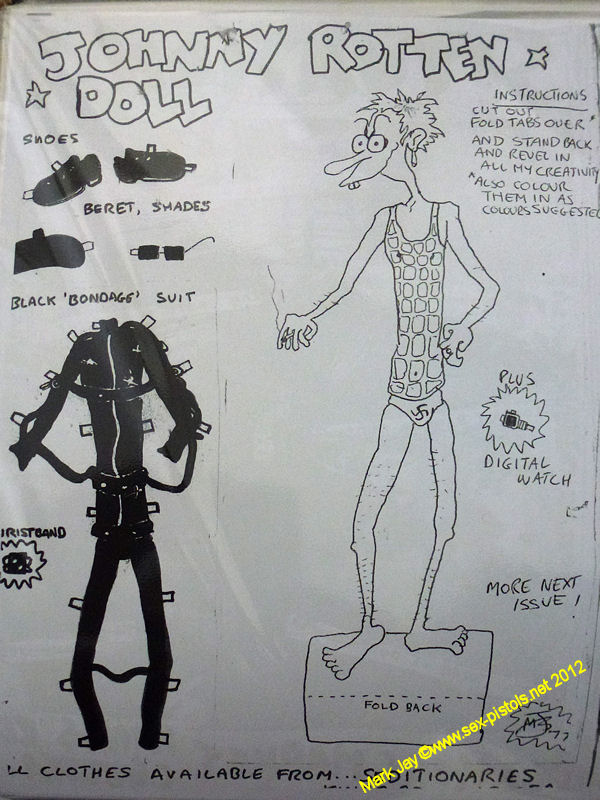 JOHNNY ROTTEN
DOLL
INSTRUCTIONS
CUT OUT
FOLD TABS OVER*
AND STAND BACK
AND REVEL IN
ALL MY CREATIVITY
*ALSO COLOUR
THEM IN AS
COLOURS SUGGESTED
SHOES
BERET, SHADES
BLACK 'BONDAGE' SUIT
PLUS
DIGITAL
WATCH
RISTBAND
MORE NEXT
ISSUE!
FOLD BACK
MJ
LL CLOTHES AVAILABLE FROM... SEDITIONARIES
Mark Jay ©www.sex-pistols.net 2012